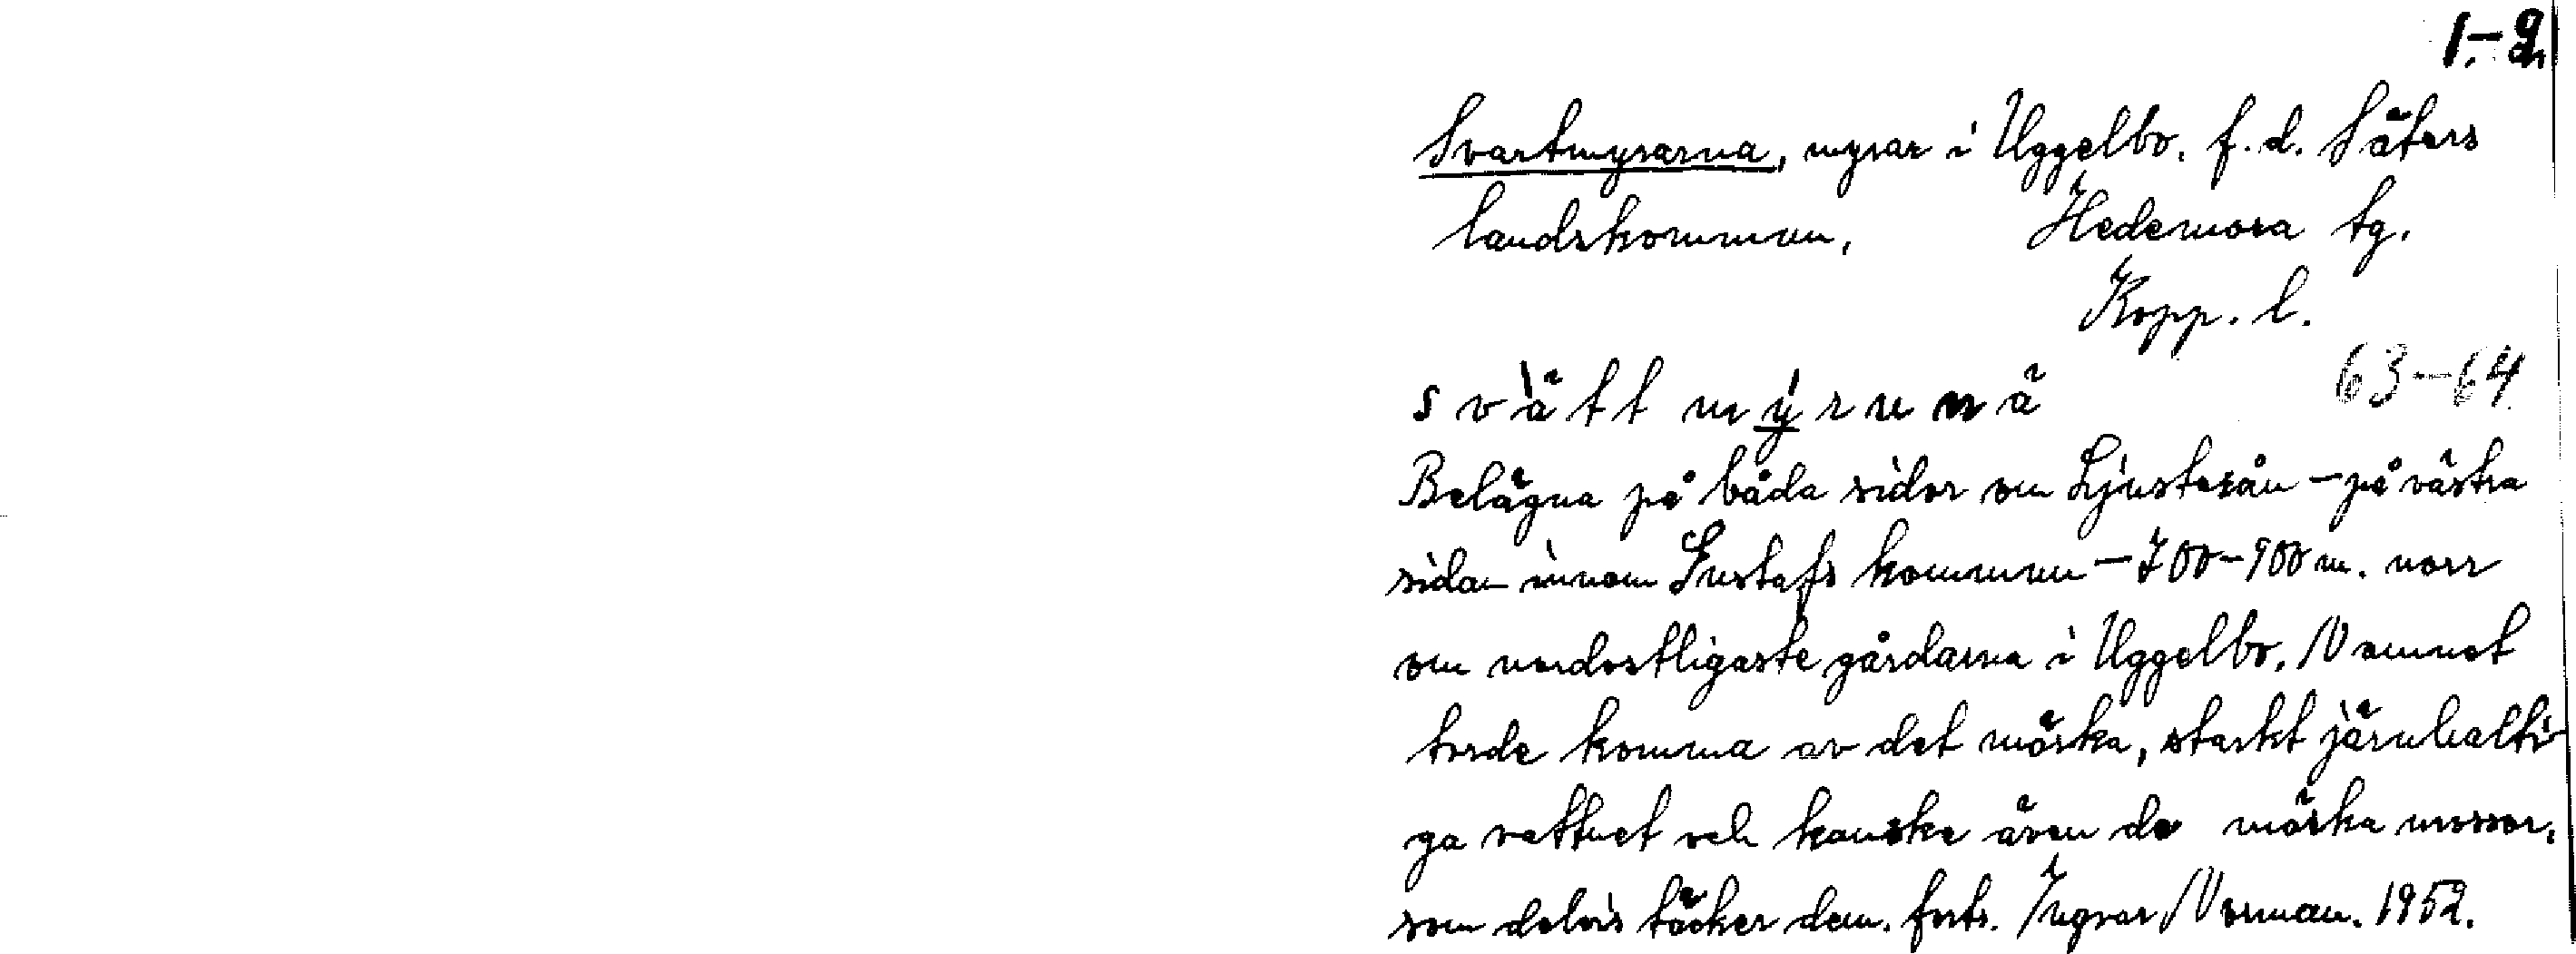 1.-2.
Svartmyrarna, myrar i Uggelbo. f.d. Säters
landskommun, Hedemora tg.
Kopp. l.
svä̀tt mýrunä 63-64
Belägna på båda sidor om Ljusterån - på västra
sidan inom Gustafs kommun - 700-900 m. norr
om nordostligaste gårdarna i Uggelbo. Namnet
torde komma av det mörka, starkt järnhalti-
ga vattnet och kanske även de mörka mossor,
som delvis täcker dem. forts. Ingvar Norman. 1952.